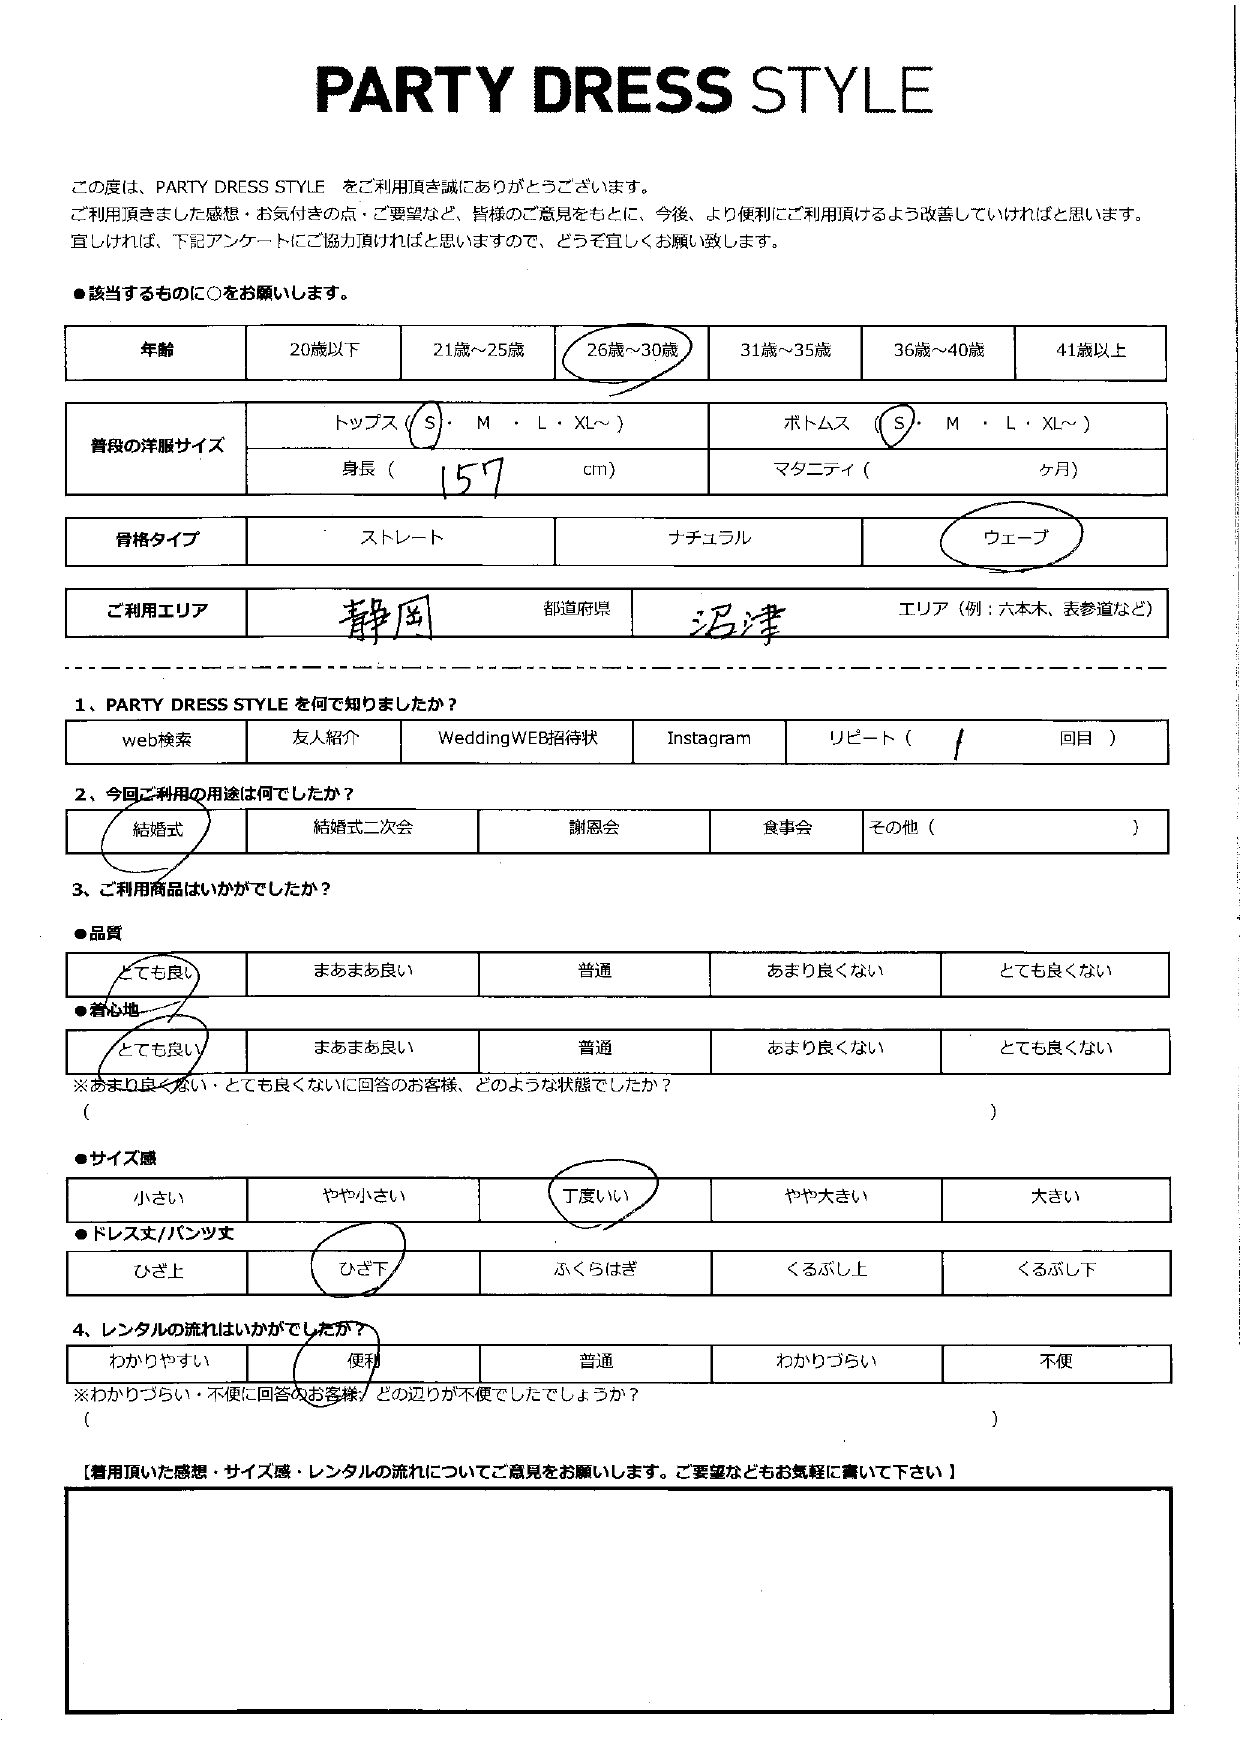 PARTY DRESS STYLE
この度は、PARTY DRESS STYLE をご利用頂き誠にありがとうございます。
ご利用頂きました感想・お気付きの点・ご要望など、皆様のご意見をもとに、今後、より便利にご利用頂けるよう改善していければと思います。
宜しければ、下記アンケートにご協力頂ければと思いますので、どうぞ宜しくお願い致します。
●該当するものに○をお願いします。
年齢 20歳以下 21歳～25歳 26歳～30歳 31歳～35歳 36歳～40歳 41歳以上
普段の洋服サイズ トップス ( S ・ M ・ L ・ XL～ ) ボトムス ( S ・ M ・ L ・ XL～ )
身長 ( 157 cm) マタニティ ( ヶ月)
骨格タイプ ストレート ナチュラル ウェーブ
ご利用エリア 静岡 都道府県 沼津 エリア（例：六本木、表参道など）
1、PARTY DRESS STYLE を何で知りましたか？
web検索 友人紹介 WeddingWEB招待状 Instagram リピート ( 1 回目 )
2、今回ご利用の用途は何でしたか？
結婚式 結婚式二次会 謝恩会 食事会 その他 ( )
3、ご利用商品はいかがでしたか？
●品質
とても良い まあまあ良い 普通 あまり良くない とても良くない
●着心地
とても良い まあまあ良い 普通 あまり良くない とても良くない
※あまり良くない・とても良くないに回答のお客様、どのような状態でしたか？
( )
●サイズ感
小さい やや小さい 丁度いい やや大きい 大きい
●ドレス丈/パンツ丈
ひざ上 ひざ下 ふくらはぎ くるぶし上 くるぶし下
4、レンタルの流れはいかがでしたか？
わかりやすい 便利 普通 わかりづらい 不便
※わかりづらい・不便に回答のお客様、どの辺りが不便でしたでしょうか？
( )
【着用頂いた感想・サイズ感・レンタルの流れについてご意見をお願いします。ご要望などもお気軽に書いて下さい 】